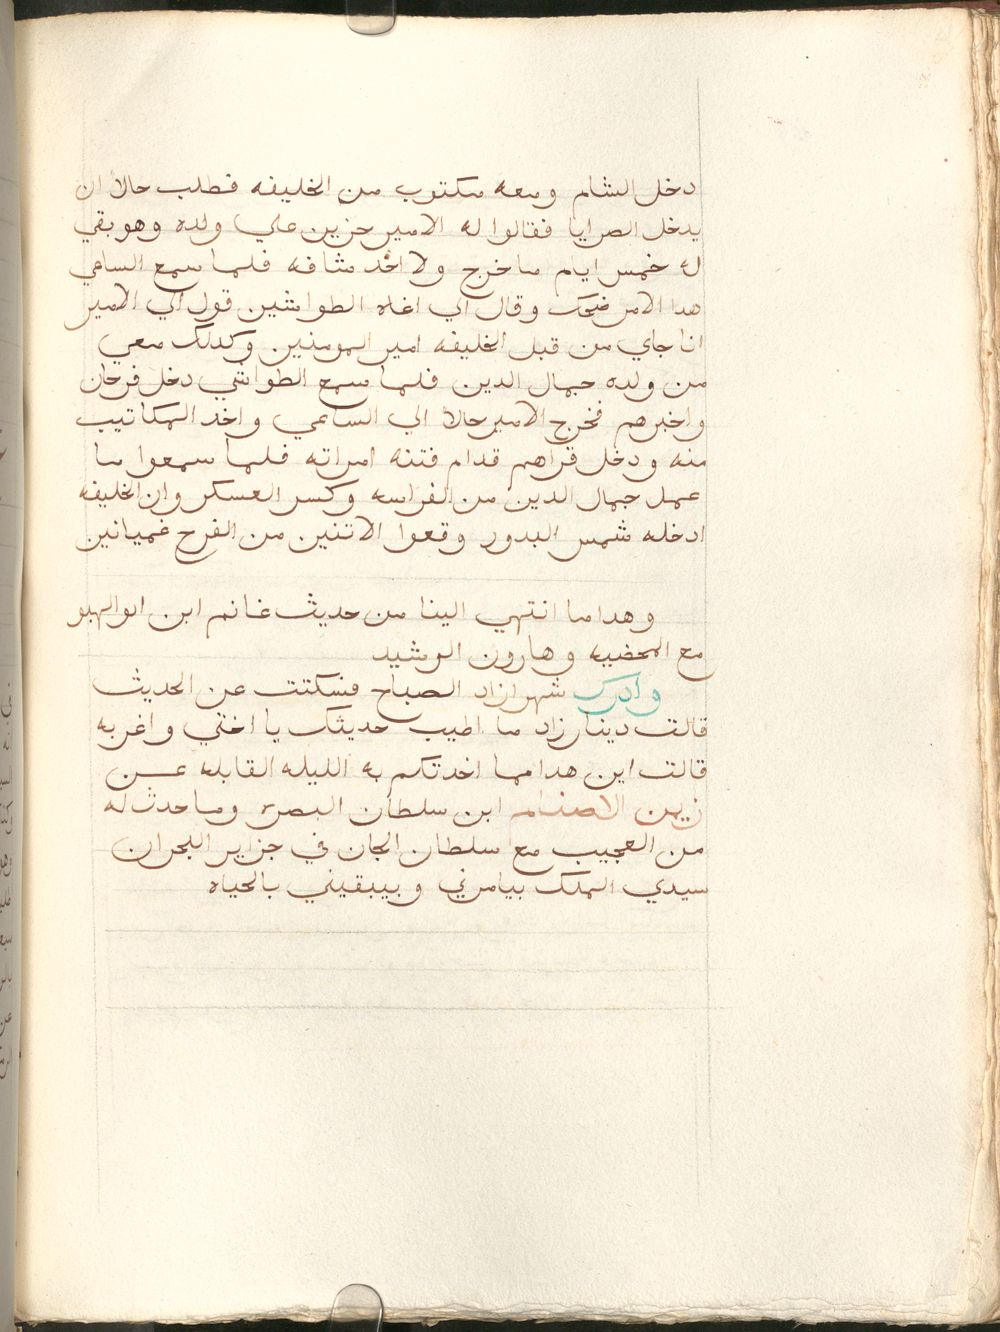 دخل الشام ومعه مكتوب من الخليفه فطلب حالا ان
يدخل الصرايا فقالوا له الامير حزين علي ولده وهو بقي
له خمس ايام ما خرج ولا اخد مشافه فلما سمع الساعي
هدا الامر ضحك وقال الي اغاه الطواشين قول الي الامير
انا جاي من قبل الخليفه امير المومنين وكدلك معي
من ولده جمال الدين فلما سمع الطواشي دخل فرحان
واخبرهم فخرج الامير حالا الي الساعي واخد المكاتيب
منه ودخل قراهم قدام فتنه امراته فلما سمعوا ما
عمل جمال الدين من الفراسه وكسر العسكر وان الخليفه
ادخله شمس البدور وقعوا الاتنين من الفرح غميانين
وهدا ما انتهي الينا من حديث غانم ابن ابو الهبو
مع المحضيه وهارون الرشيد
وادرك شهرازاد الصباح فسكتت عن الحديث
قالت دينارزاد ما اطيب حديثك يا اختي واغربه
قالت اين هدا مما احدتكم به الليله القابله عن
زين الاصنام ابن سلطان البصره وما حدث له
من العجيب مع سلطان الجان في جزاير البحران
سيدي الملك بيامرني وبيبقيني بالحياه